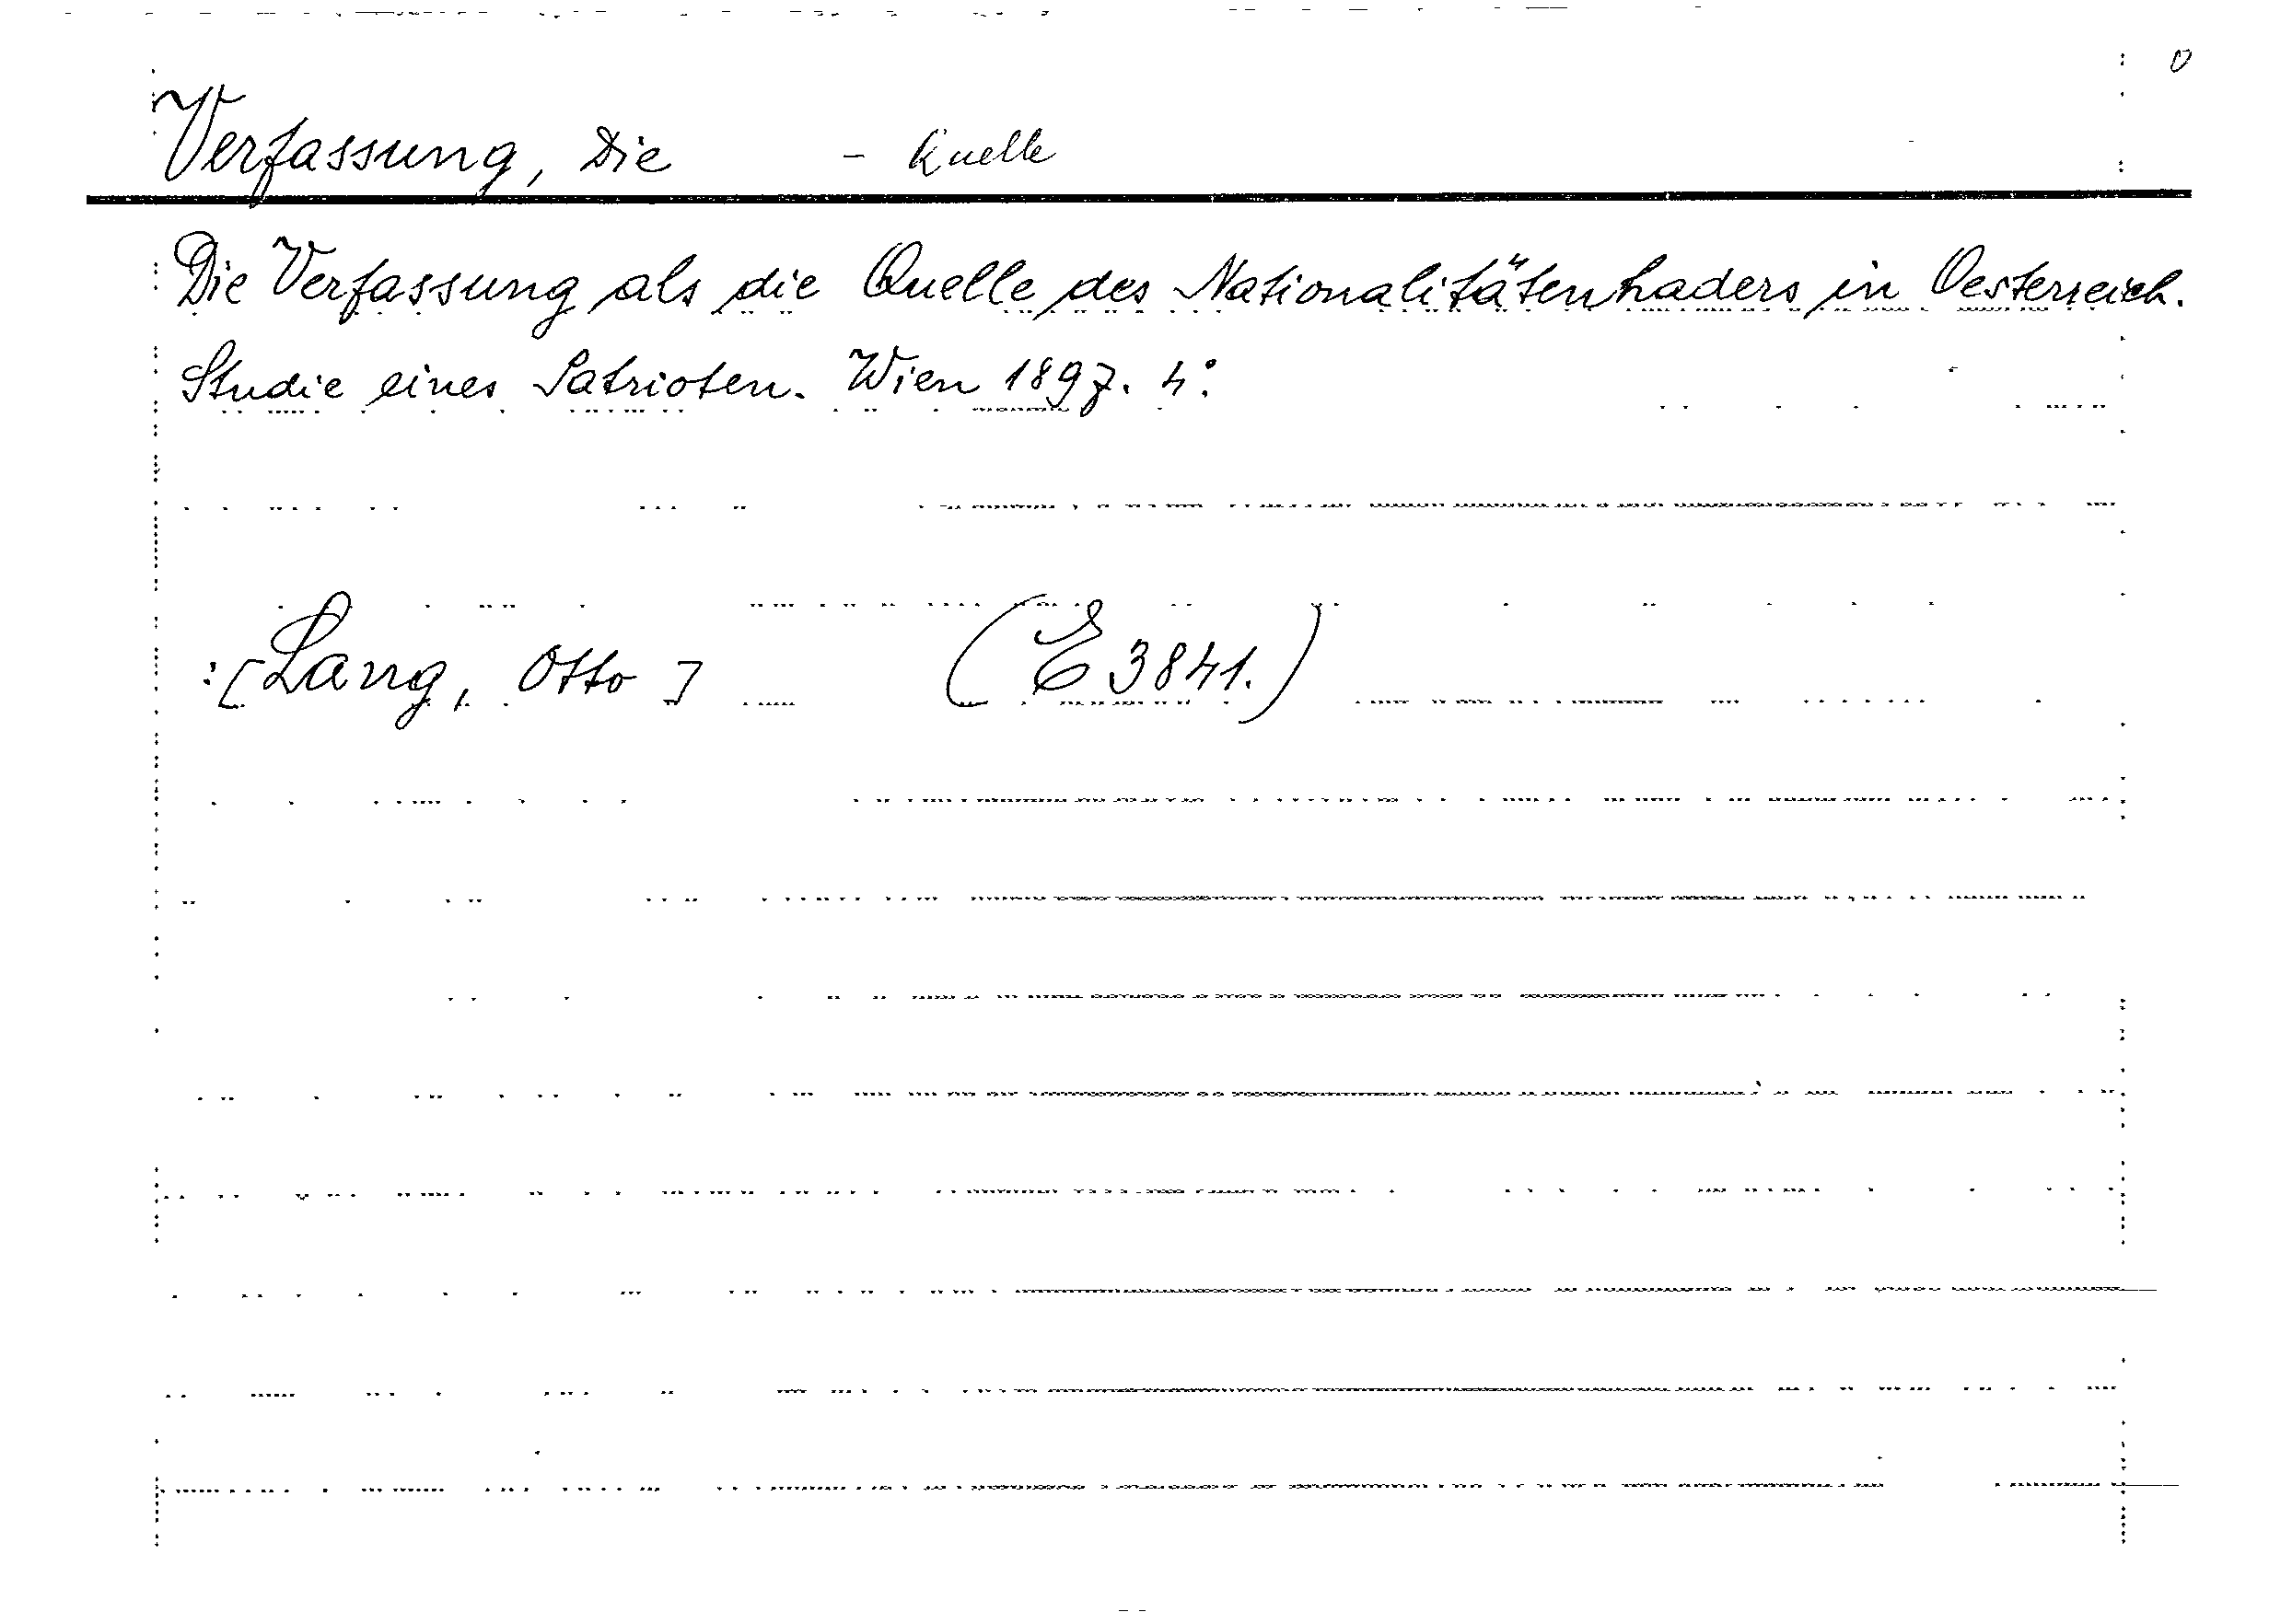 0
Verfassung, Die - Quelle
Die Verfassung als die Quelle des Nationalitätenhaders in Oesterreich.
Studie eines Patrioten. Wien 1897. 4°.
:[Lang, Otto] (E 3841.)